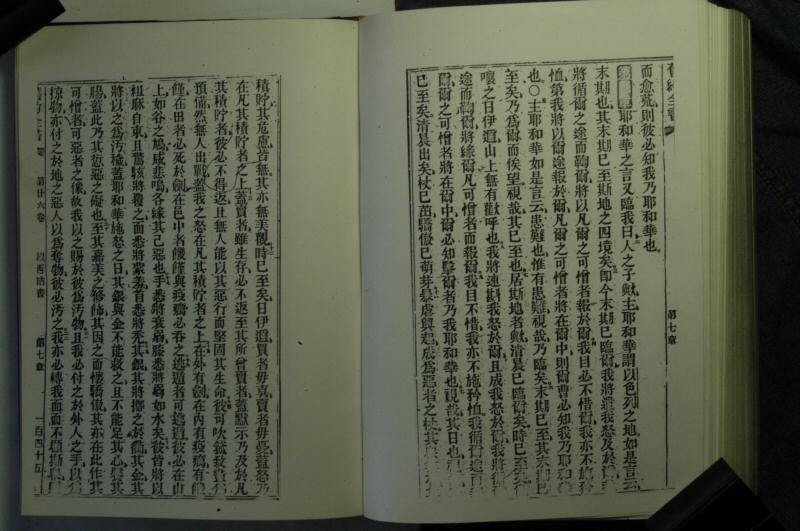 舊約全書
第七章
而愈荒則彼必知我乃耶和華也
耶和華之言又臨我曰人之子歟主耶和華謂以色列之地如是言云
末期也其末期已至斯地之四境矣即今末期已臨爾我將遣我怒及於爾
將循爾之途而鞫爾將以凡爾之可憎者報於爾我目必不惜爾我亦不施矜
恤第我將以爾途報於爾凡爾之可憎者將在爾中則爾曹必知我乃耶和華
也○主耶和華如是言云患難也惟有患難視哉乃臨矣末期已至其末期已
至矣乃為爾而俟望視哉其已至也居斯地者歟清晨已臨爾矣時已至矣
嚷之日伊邇山上無有歡呼也我將速斟我怒於爾且成我怒於爾我將
途而鞫爾將緣爾凡可憎者而報爾我目不惜爾我亦不施矜恤我循爾途
爾爾之可憎者將在爾中爾必知擊爾者乃我耶和華也視哉其日也
已至矣清晨出矣杖已茁驕傲已萌芽暴虐興起成為惡者之杖其
積貯其危慮皆無其亦無美觀時已至矣日伊邇買者毋喜賣者毋憂蓋怒乃
在凡其積貯者之上蓋賣者雖生存必不返至其所曾賣者蓋默示乃及於凡
其積貯者彼必不得返且無人能以其惡行而堅固其生命彼可吹號致
預備然無人出戰蓋我之怒在凡其積貯者之上在外有劍在內有疫癘有
僅在田者必死於劍在邑中者饑饉與疫癘必吞之逃遁者可逃遁彼必在山
上如谷之鳩咸悲鳴各緣其己惡也手悉將衰弱膝悉將弱如水矣彼皆將以
組麻自束且驚駭將覆之面悉將蒙羞首悉將禿其銀其將擲之於街其金其
將以之為汚穢蓋耶和華施怒之日其銀與金不能救之且不能足其心
腸蓋此乃其愆惡之礙也至其嘉美之修飾其因之而懷驕傲其亦在此作其
可憎者可惡者之像故我以之賜於彼為汚物且我必付之於外人之手以
掠物亦付之於地之惡人以為奪物彼必汚之我亦必轉我面而不顧
第廿六卷
以西結書
第七章
一百四十五